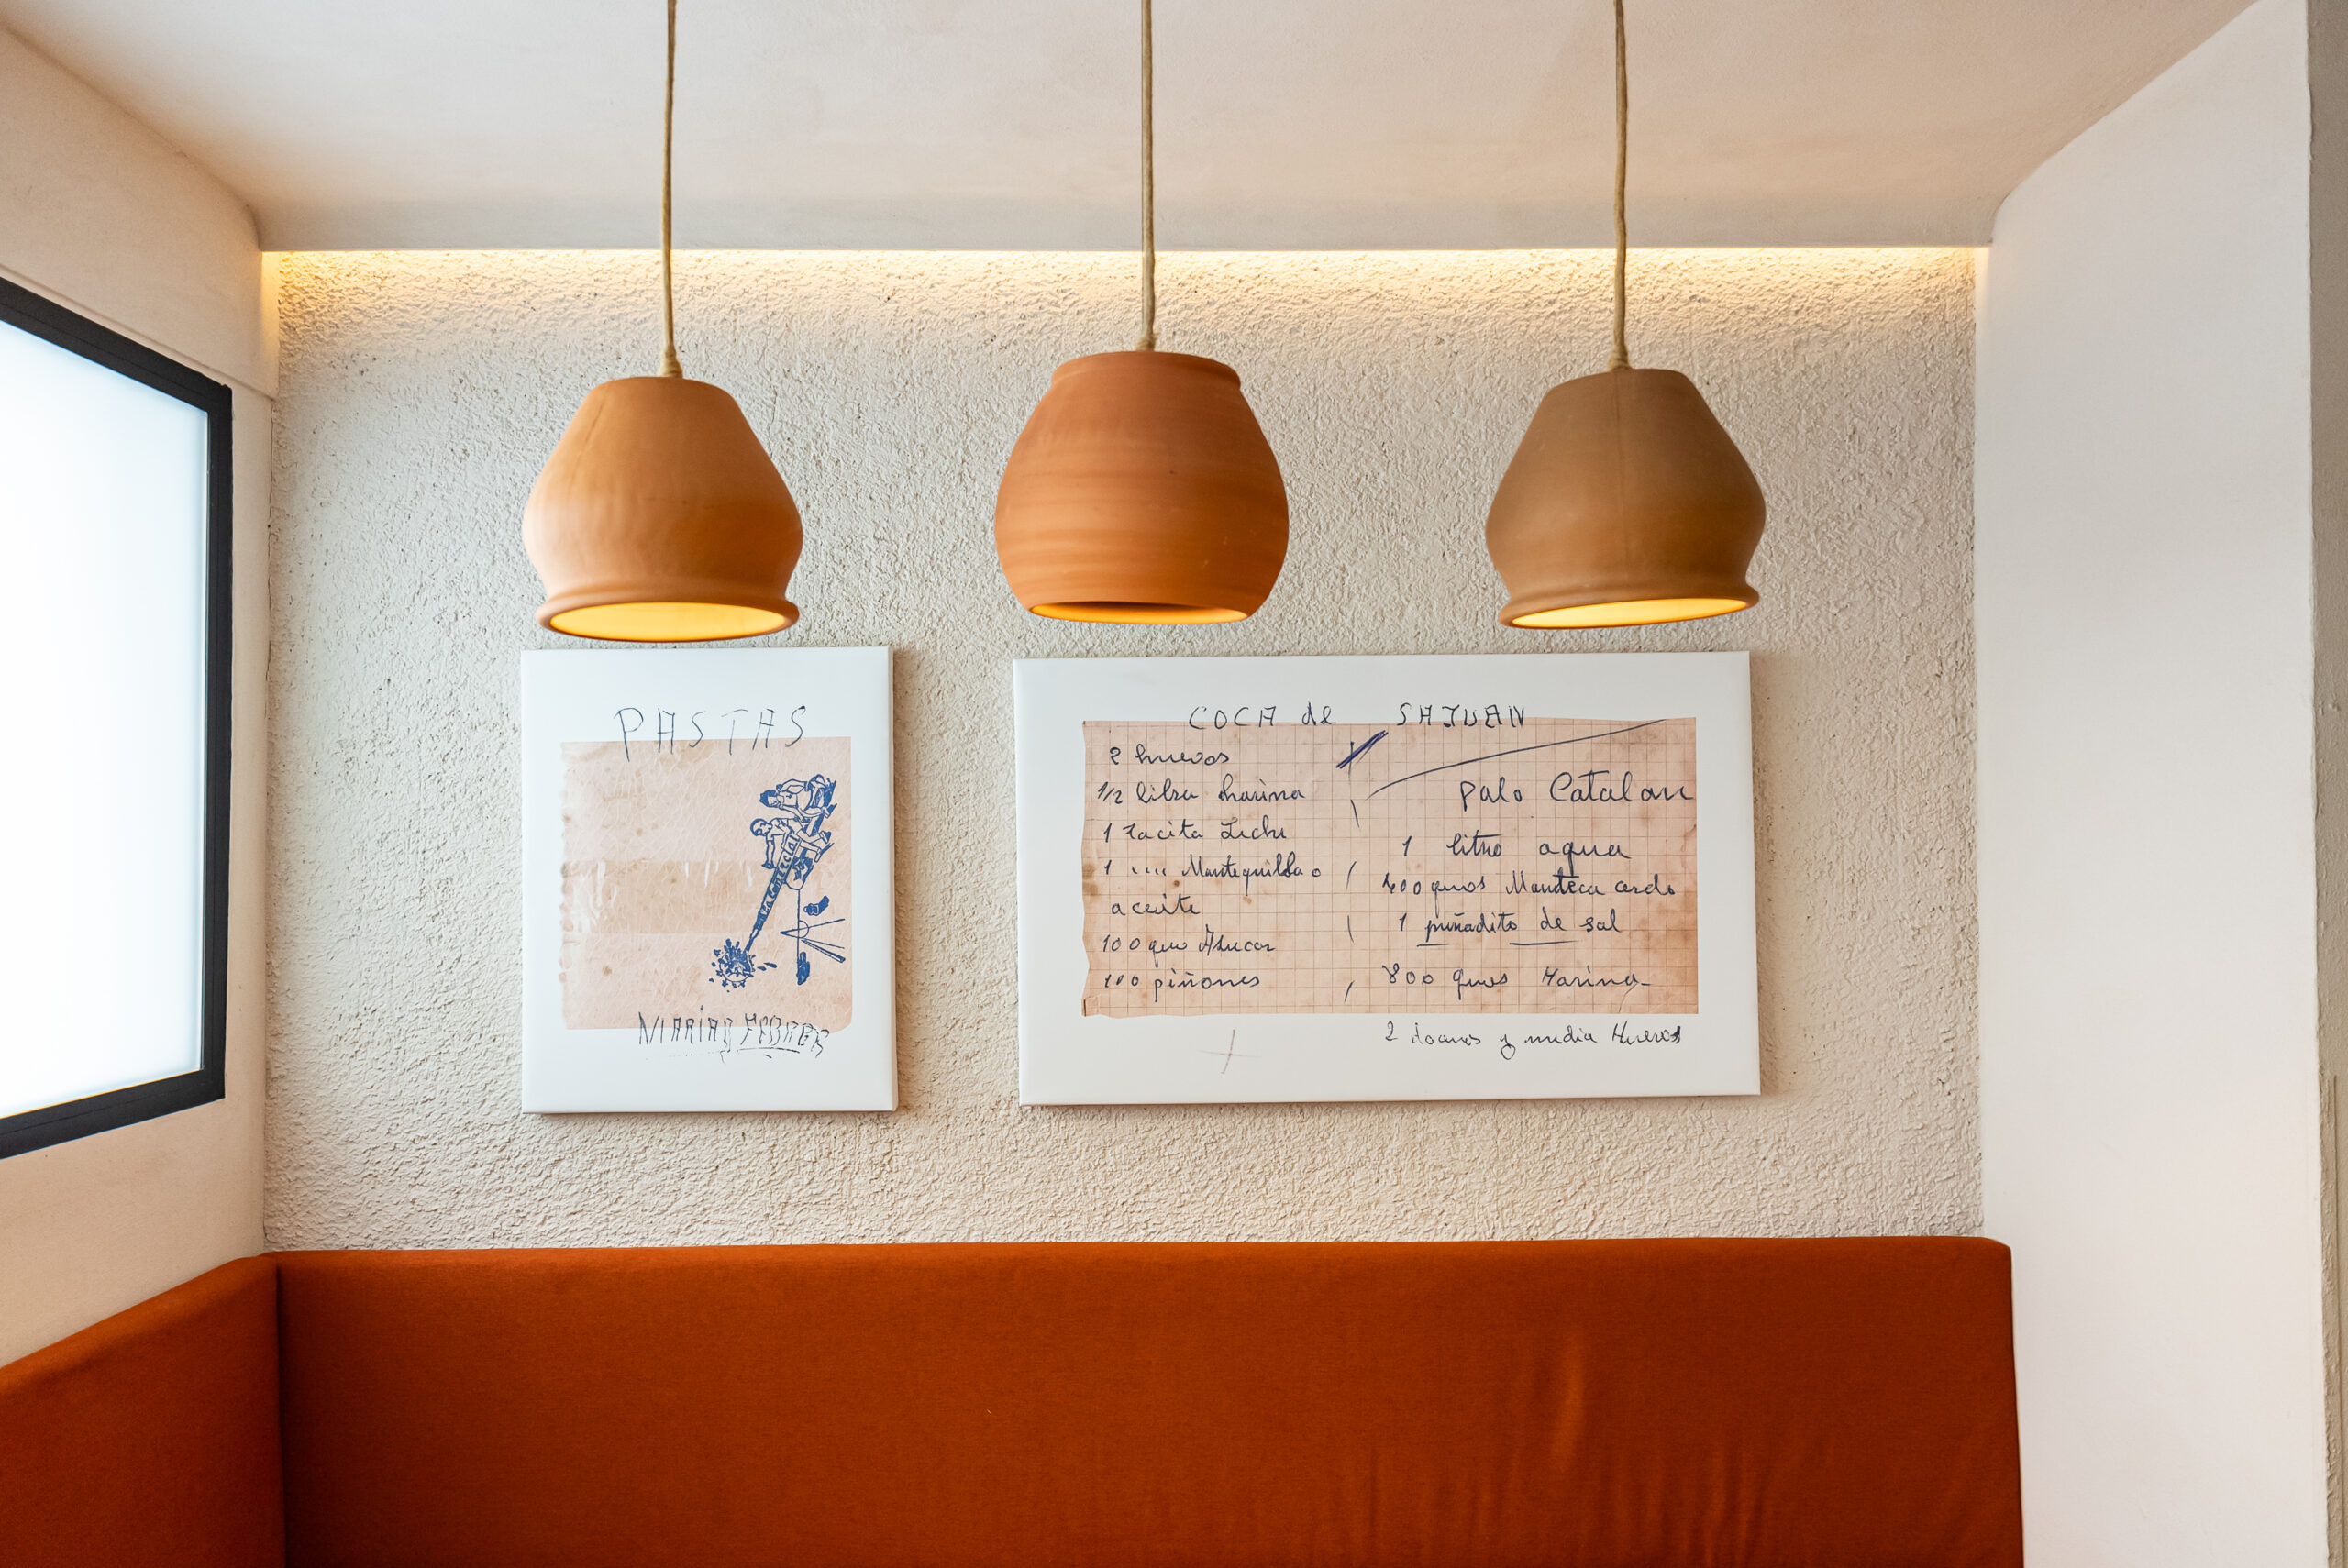 PASTAS
COCA de SAJUAN
2 huevos
1/2 libra harina
1 tacita Leche
1 ,,,, Mantequilla o
aceite
100 gus Asucar
100 piñones
Palo Catalan
1 litro agua
400 grmos Manteca cerdo
1 puñadito de sal
800 grmes Harina
2 docenas y media Huevos